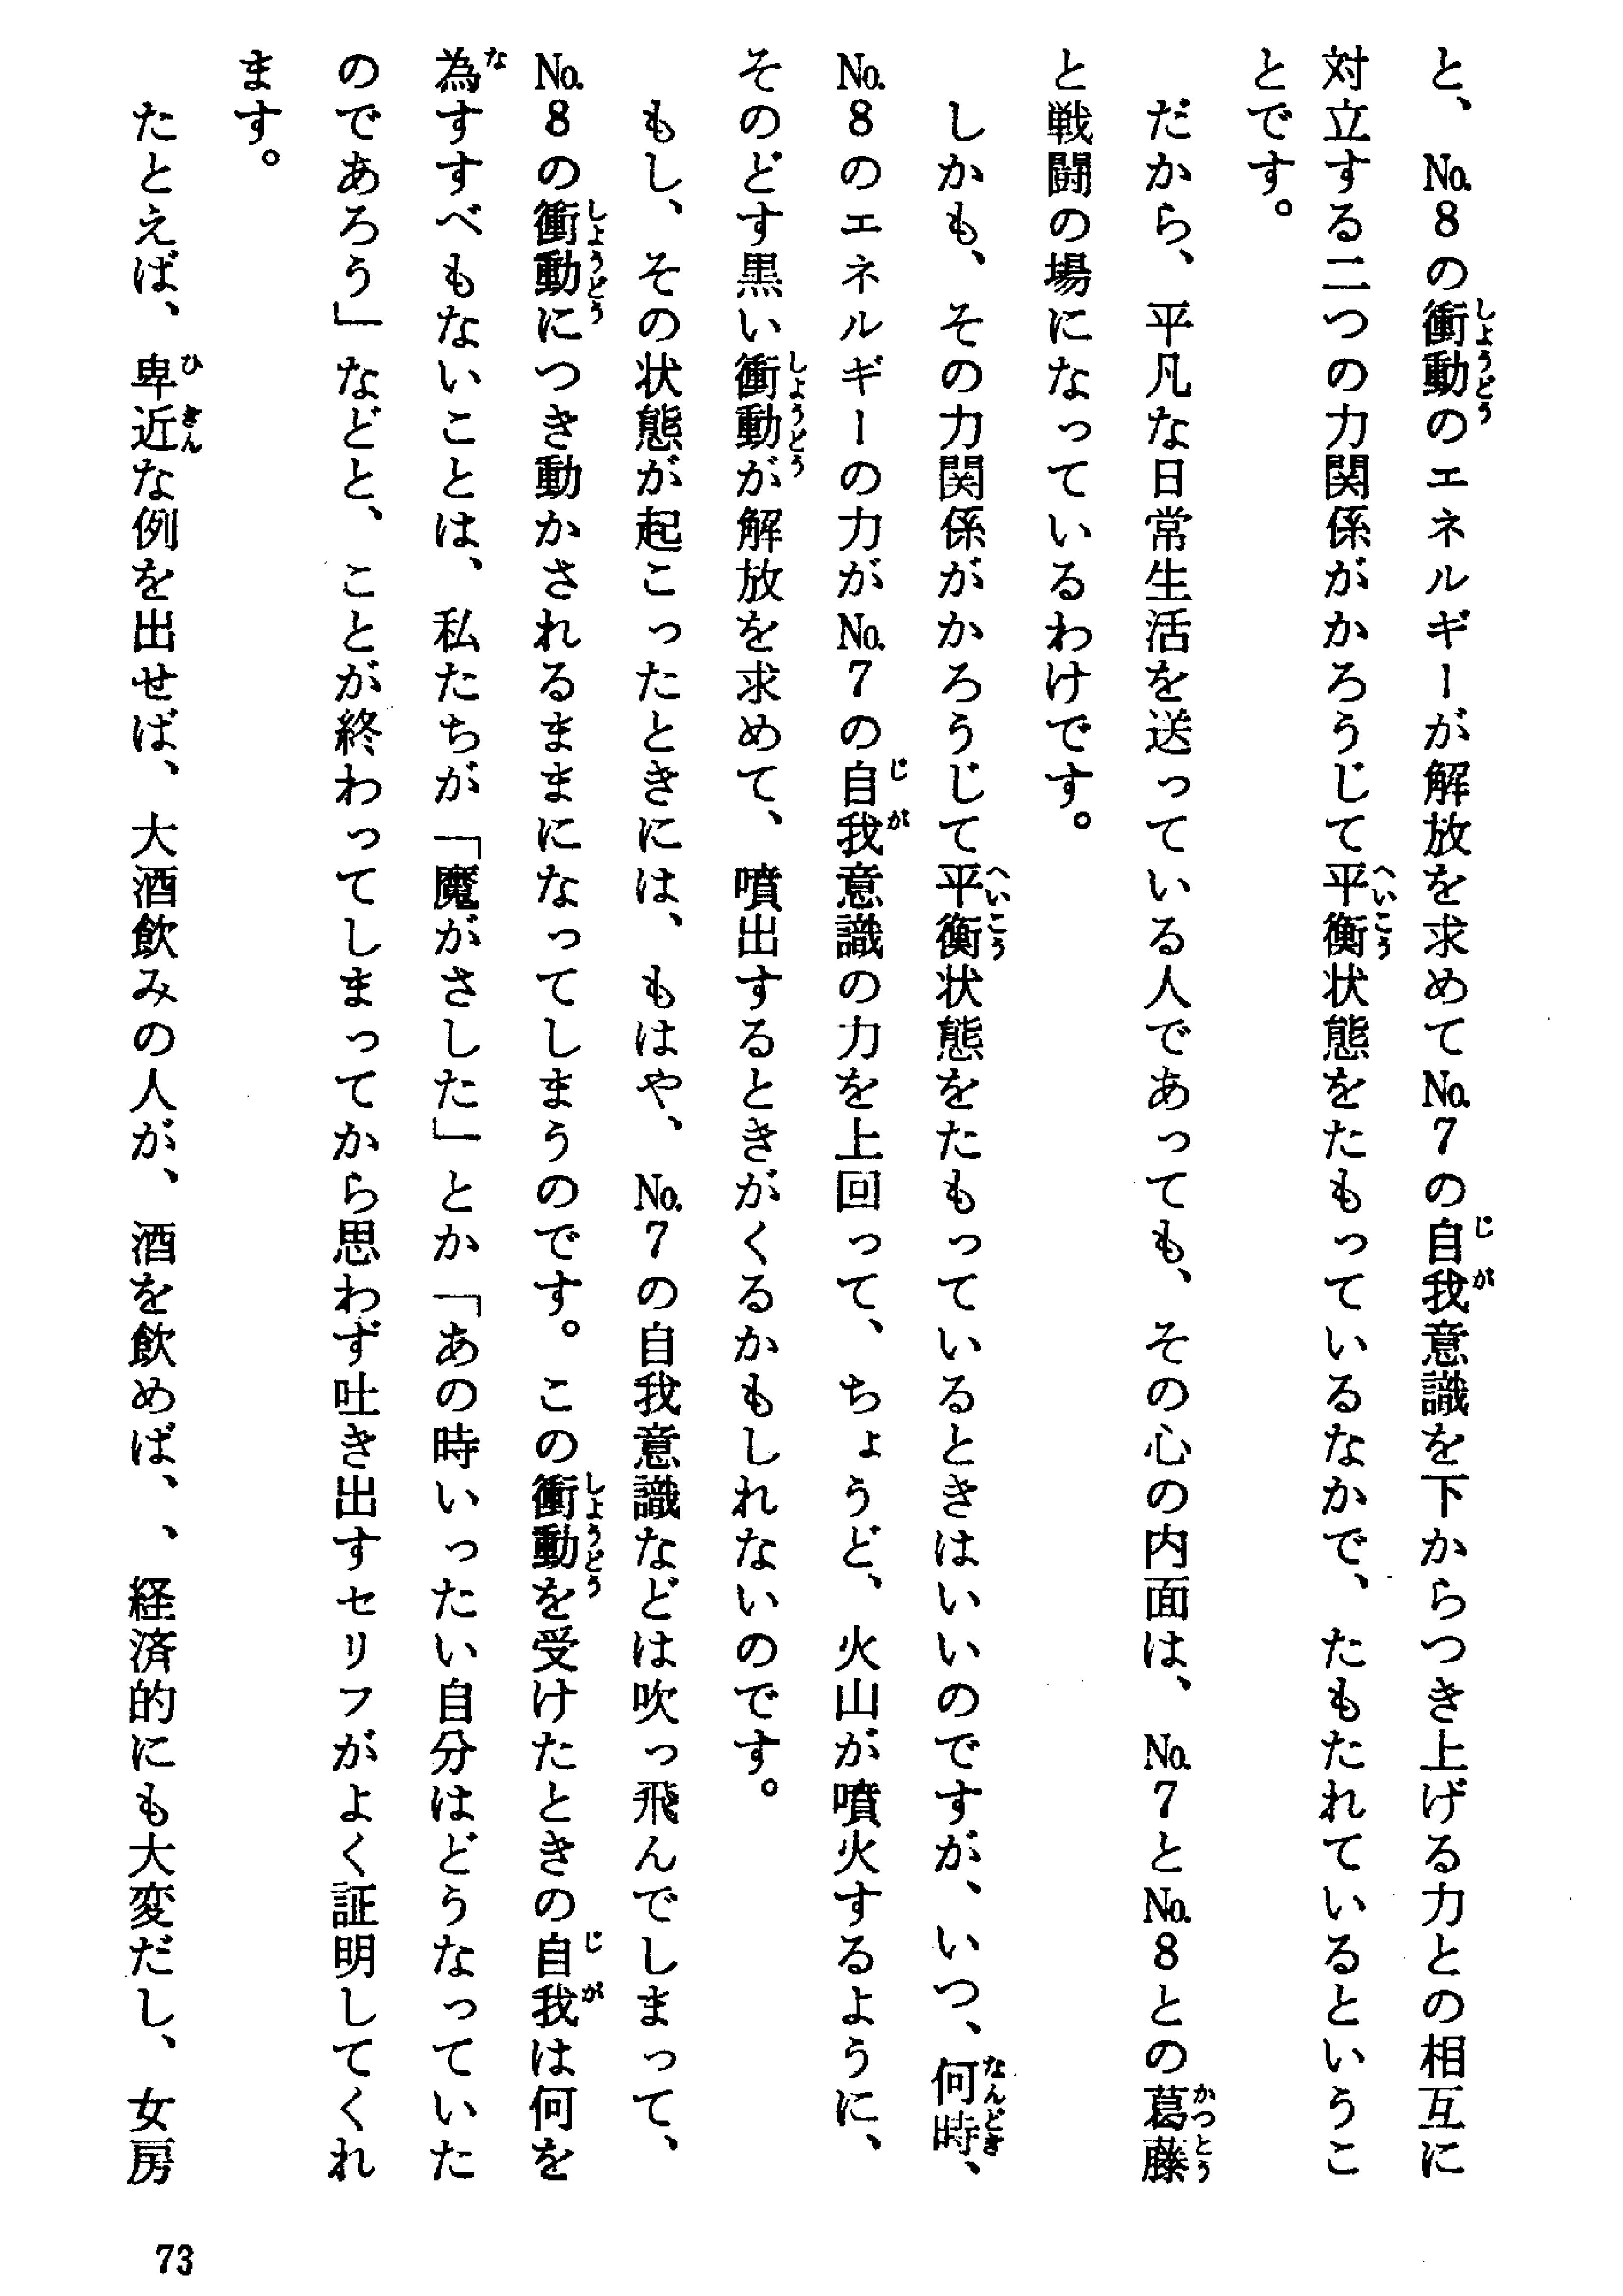 と、No.8の衝動のエネルギーが解放を求めてNo.7の自我意識を下からつき上げる力との相互に
対立する二つの力関係がかろうじて平衡状態をたもっているなかで、たもたれているというこ
とです。
だから、平凡な日常生活を送っている人であっても、その心の内面は、No.7とNo.8との葛藤
と戦闘の場になっているわけです。
しかも、その力関係がかろうじて平衡状態をたもっているときはいいのですが、いつ、何時、
No.8のエネルギーの力がNo.7の自我意識の力を上回って、ちょうど、火山が噴火するように、
そのどす黒い衝動が解放を求めて、噴出するときがくるかもしれないのです。
もし、その状態が起こったときには、もはや、No.7の自我意識などは吹っ飛んでしまって、
No.8の衝動につき動かされるままになってしまうのです。この衝動を受けたときの自我は何を
為すすべもないことは、私たちが「魔がさした」とか「あの時いったい自分はどうなっていた
のであろう」などと、ことが終わってしまってから思わず吐き出すセリフがよく証明してくれ
ます。
たとえば、卑近な例を出せば、大酒飲みの人が、酒を飲めば、、経済的にも大変だし、女房
73